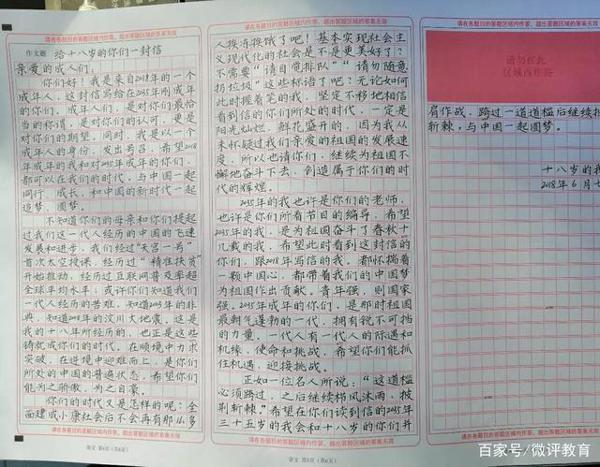 请在各题目的答题区域内作答，超出答题区域的答案无效
作文题 给十八岁的你们一封信
亲爱的成人们：
你们好！我是来自2018年的一个
成年人，这封信写给在2035年刚成年
的你们。成年人们，是对你们最恰
当的称谓，是对你们的认可，更是
对你们的期望。同时，我是以一个
成年人的身份，发出号召，希望2018
年成年的我和对2035年成年的你们，
都可以在我们的时代，与中国一起
同行、成长，和中国的新时代一起
追梦、圆梦。
不知道你们的母亲和你们提起
过我们这一代人经历的中国的飞速
发展和进步。我们经过“天宫一号”
首次太空授课，经历过“精准扶贫”
开始推动，经历过互联网普及率超
全球平均水平；或许你们知道我们一
代人经历的苦难，知道2003年的非
典，知道2008年的汶川大地震，这是
我的十八年所经历的，也正是这些
铸就成你们的时代。在顺境中力求
突破，在逆境中迎难而上，是你们
所处的中国的普遍状态，希望你们
能为之骄傲，为之自豪。
你们的时代又是怎样的呢：全
面建成小康社会后不会再有那么多
请在各题目的答题区域内作答，超出答题区域的答案无效
语文 第4页（共6页）
请在各题目的答题区域内作答，超出答题区域的答案无效
人挨冻挨饿了吧！基本实现社会主
义现代化的社会是不是更美好了？
不需要“请自觉排队”“请勿随意
扔垃圾”这些标语了吧？无论如何
此时握着笔的我，坚定不移地相信
看到信的你们所处的时代，一定是
阳光灿烂、鲜花盛开的，因为我从
未怀疑过我们亲爱的祖国的发展速
度，所以也请你们，继续为祖国不
懈地奋斗下去，创造属于你们的时
代的辉煌。
2035年的我也许是你们的老师，
也许是你们所看节目的编导，希望
2035年的我，是为祖国奋斗了春秋十
几载的我，希望此时看到这封信的
你们，跟2018年写信的我，都怀揣着
一颗中国心，都带着我们的中国梦
为祖国作出贡献。青年强，则国家
强。2035年成年的你们，是那时祖国
最朝气蓬勃的一代，拥有锐不可挡
的力量，一代人有一代人的际遇和
机缘、使命和挑战，希望你们能抓
住机遇、迎接挑战。
正如一位名人所说：“这道槛
必须跨过，之后继续栉风沐雨、披
荆斩棘。”希望在你们读到信的2035年
三十五岁的我会和十八岁的你们并
请在各题目的答题区域内作答，超出答题区域的答案无效
语文 第5页（共6页）
请在各题目的答题区域内作答
请勿在此
区域内作答
肩作战，跨过一道道槛后继续披
斩棘，与中国一起圆梦。
十八岁的我
2018年6月7
请在各题目的答题区域内作答
百家号/微评教育